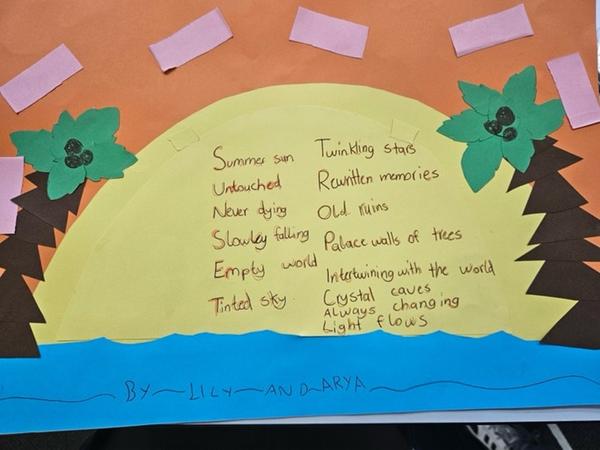 Summer sun
Untouched
Never dying
Slowley falling
Empty world
Tinted sky
Twinkling stars
Rewritten memories
Old ruins
Palace walls of trees
Intertwining with the world
Crystal caves
Always changing
Light flows
BY LILY AND ARYA